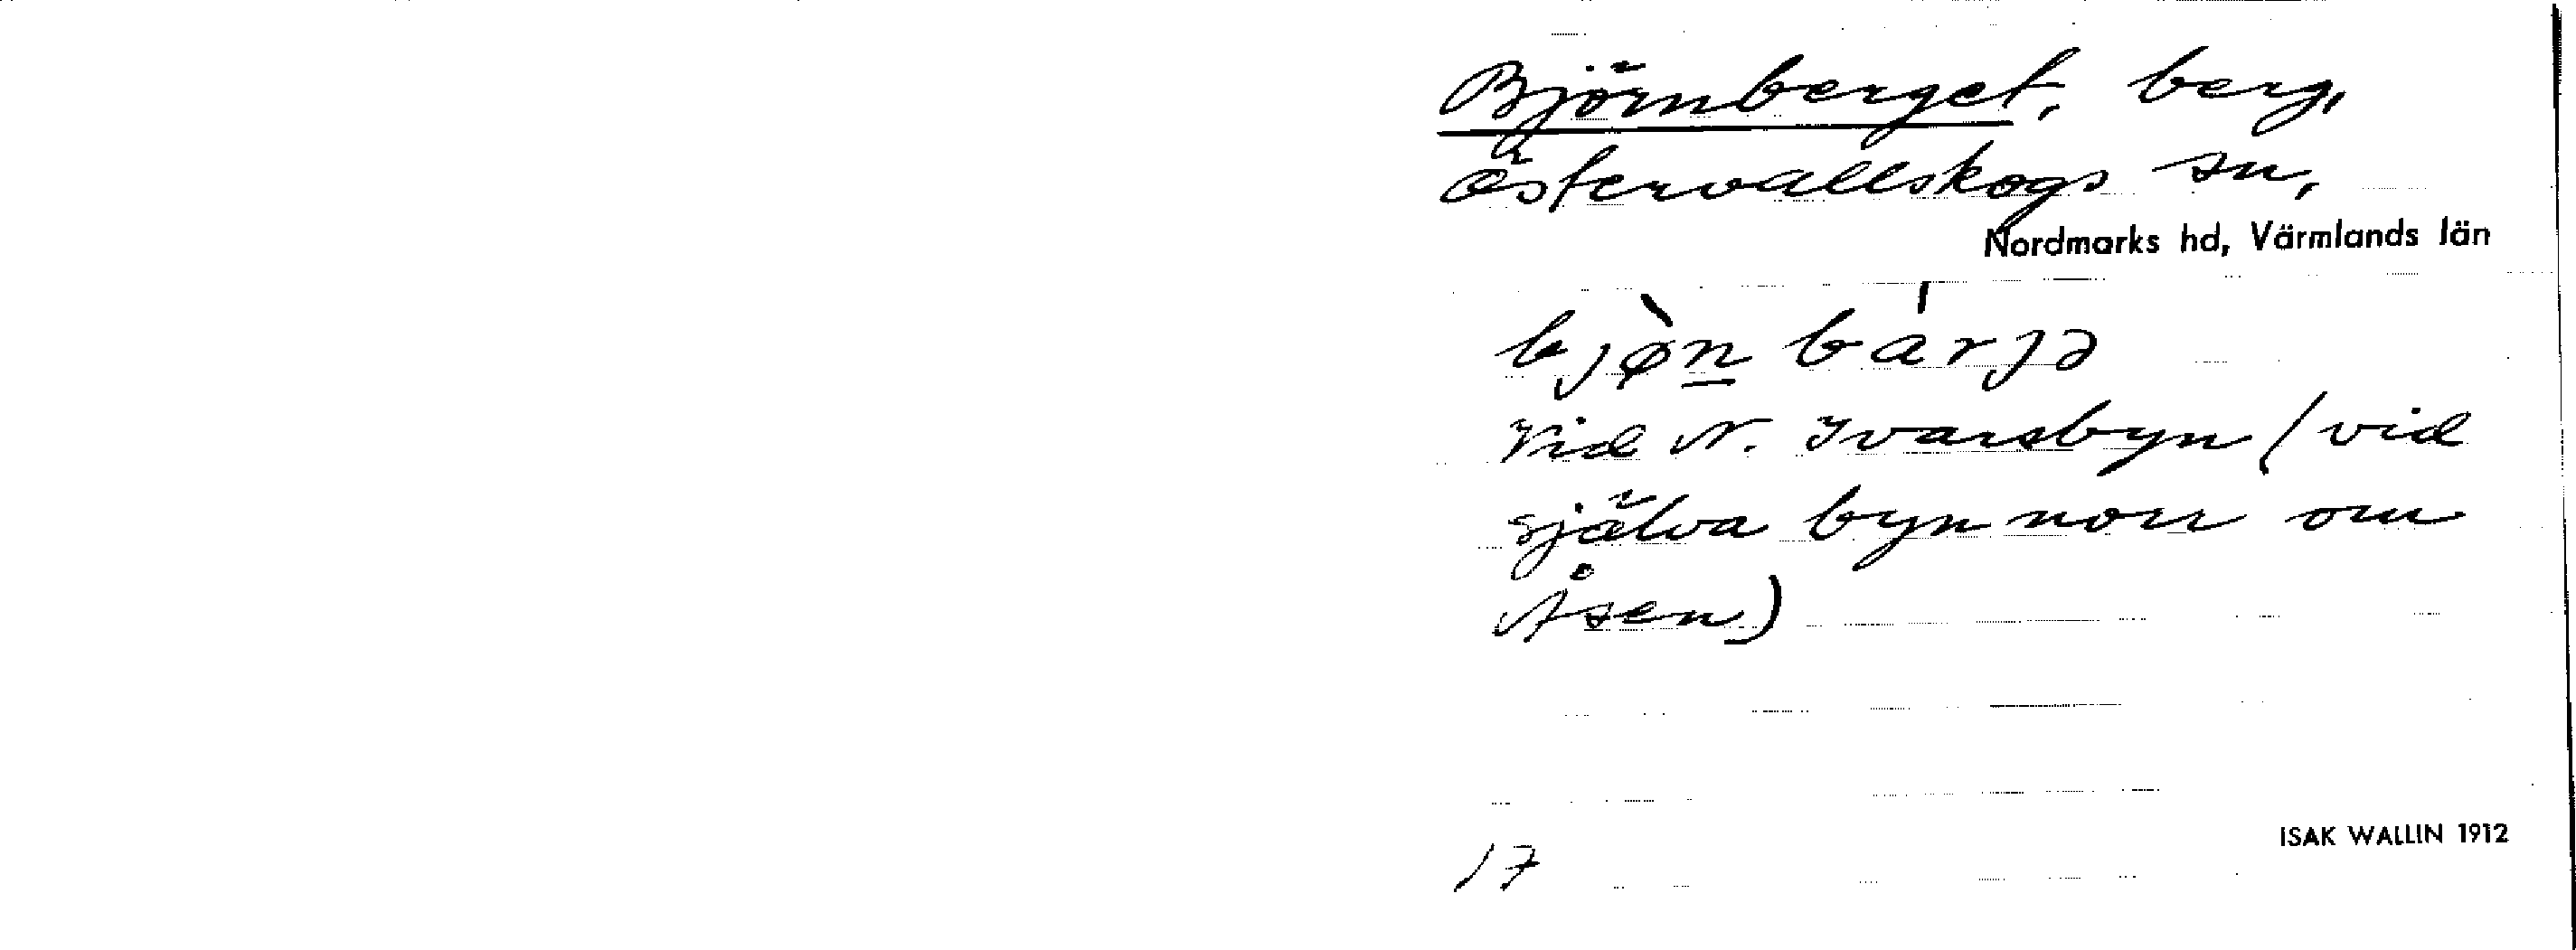 Björnberget, berg,
Östervallskogs sn,
Nordmarks hd, Värmlands län
bjø̀n bárjə
Vid N. Ivarsbyn (vid
själva byn norr om
Åsen)
ISAK WALLIN 1912
17